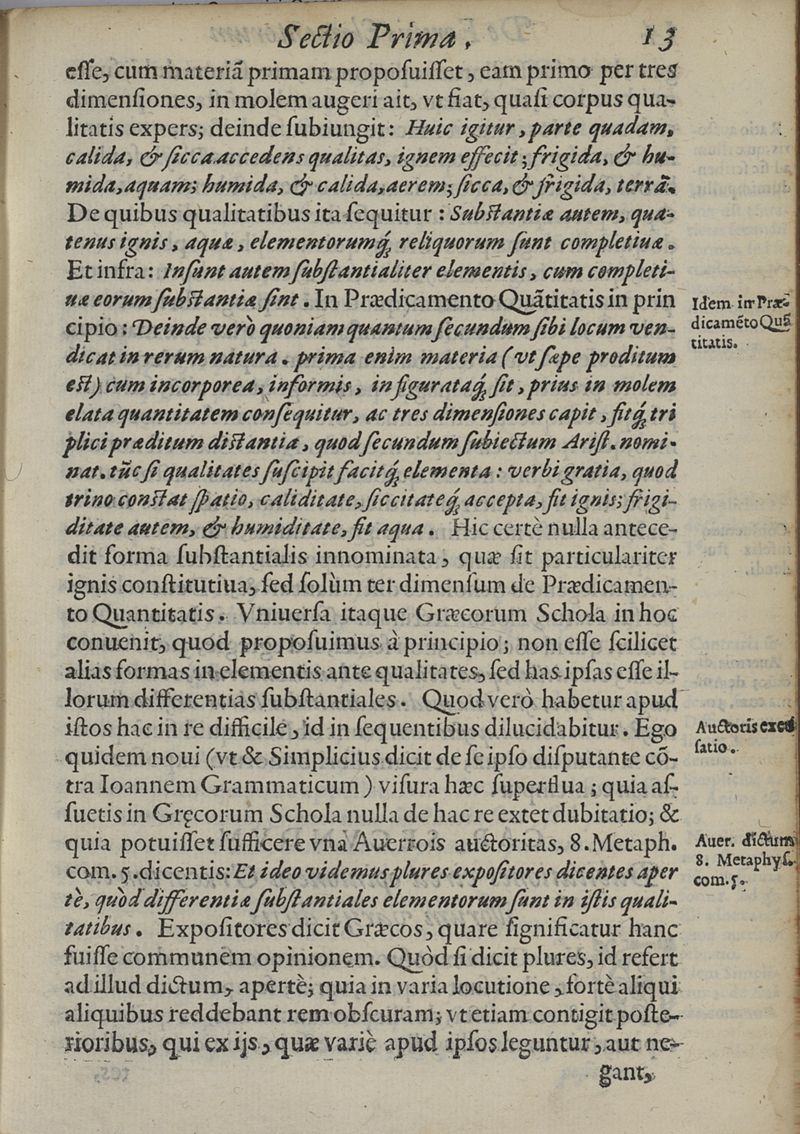 Sectio Prima. 13
eſſe, cum materiã primam propoſuiſſet, eam primo per tres
dimenſiones, in molem augeri ait, vt fiat, quaſi corpus qua-
litatis expers; deinde ſubiungit: Huic igitur, parte quadam,
calida, & ſicca accedens qualitas, ignem effecit; frigida, & hu-
mida, aquam; humida, & calida, aerem; ſicca, & frigida, terrã.
De quibus qualitatibus ita ſequitur: Subſtantiæ autem, qua-
tenus ignis, aquæ, elementorumq́; reliquorum ſunt completiuæ.
Et infra: Inſunt autem ſubſtantialiter elementis, cum completi-
uæ eorum ſubſtantiæ ſint. In Prædicamento Quãtitatis in prin
cipio: Deinde verò quoniam quantum ſecundum ſibi locum ven-
dicat in rerum natura. prima enim materia (vt ſæpe proditum
eſt) cum incorporea, informis, infigurataq́; ſit, prius in molem
elata quantitatem conſequitur, ac tres dimenſiones capit, fitq́; tri
plici præditum diſtantia, quod ſecundum ſubiectum Ariſt. nomi-
nat. tũc ſi qualitates ſuſcipit facitq́; elementa: verbi gratia, quod
trino conſtat ſpatio, caliditate, ſiccitateq́; accepta, fit ignis; frigi-
ditate autem, & humiditate, fit aqua. Hic certè nulla antece-
dit forma ſubſtantialis innominata, quæ ſit particulariter
ignis conſtitutiua, ſed ſolùm ter dimenſum de Prædicamen-
to Quantitatis. Vniuerſa itaque Græcorum Schola in hoc
conuenit, quod propoſuimus à principio; non eſſe ſcilicet
alias formas in elementis ante qualitates, ſed has ipſas eſſe il-
lorum differentias ſubſtantiales. Quod verò habetur apud
iſtos hac in re difficile, id in ſequentibus dilucidabitur. Ego
quidem noui (vt & Simplicius dicit de ſe ipſo diſputante cõ-
tra Ioannem Grammaticum) viſura hæc ſuperflua; quia aſ-
ſuetis in Gręcorum Schola nulla de hac re extet dubitatio; &
quia potuiſſet ſufficere vna Auerrois auctoritas, 8. Metaph.
com. 5. dicentis: Et ideo videmus plures expoſitores dicentes aper
tè, quòd differentiæ ſubſtantiales elementorum ſunt in iſtis quali-
tatibus. Expoſitores dicit Græcos, quare ſignificatur hanc
fuiſſe communem opinionem. Quòd ſi dicit plures, id refert
ad illud dictum, apertè; quia in varia locutione, fortè aliqui
aliquibus reddebant rem obſcuram; vt etiam contigit poſte-
rioribus, qui ex ijs, quæ variè apud ipſos leguntur, aut ne-
gant,
Idem in Præ-
dicamẽto Quã
titatis.
Auctoris excu
ſatio.
Auer. dictum
8. Metaphyſ.
com. 5.